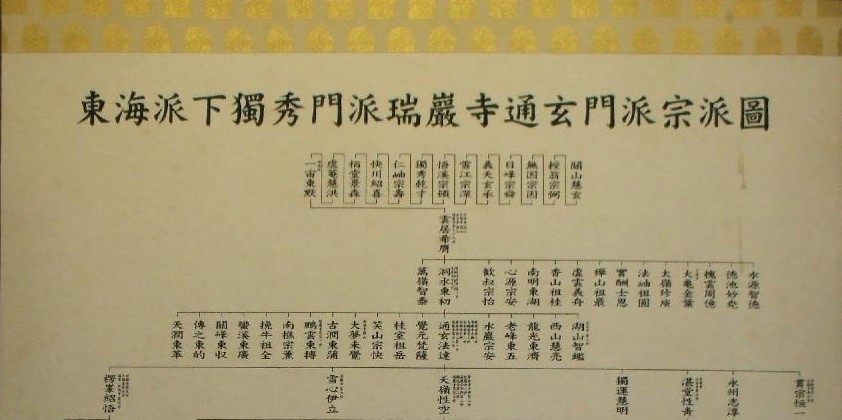 東海派下獨秀門派瑞巖寺通玄門派宗派圖
關山慧玄
授翁宗弼
無因宗因
日峰宗舜
義天玄承
雪江宗深
悟溪宗頓
獨秀乾才
仁岫宗壽
快川紹喜
栢堂景森
虛菴慧洪
一宙東默
雲居希膺
水源智德
德池妙堯
槐雲周億
大龜金葉
太嶺珍庵
法岫祖圓
實酬士恩
樺山祖最
虛雲義舟
香山祖桂
南明東湖
心源宗安
歡叔宗怡
洞水東初
萬嶺智泰
湖山智鑑
西山慧亮
龍光東濟
老峰東五
水巖宗安
通玄法達
覺元梵薩
桂室祖岳
笑山宗快
大夢未覺
古澗東蒲
鵬雲東搏
南樵宗薰
挽牛祖全
鑾溪東廣
關峰東収
傳之東的
天潤東革
貫宗恒一
永州志淳
湛堂性青
獨運慧明
天嶺性空
雪心伊立
楞峯紹悟